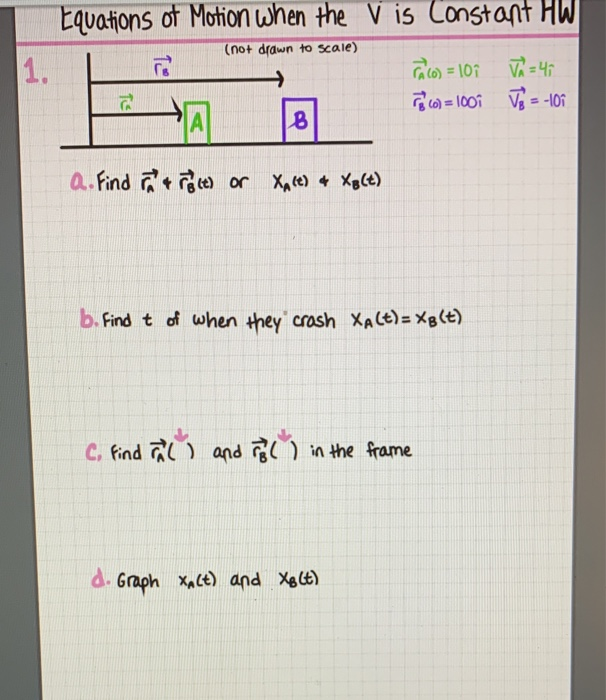 Equations of Motion when the V is Constant HW
(not drawn to scale)
1.
r⃗B
r⃗A
A
B
r⃗A(0) = 10î V⃗A = 4î
r⃗B(0) = 100î V⃗B = -10î
a. Find r⃗A & r⃗B(t) or XA(t) & XB(t)
b. Find t of when they crash XA(t) = XB(t)
C. Find r⃗A( ) and r⃗B( ) in the frame
d. Graph XA(t) and XB(t)